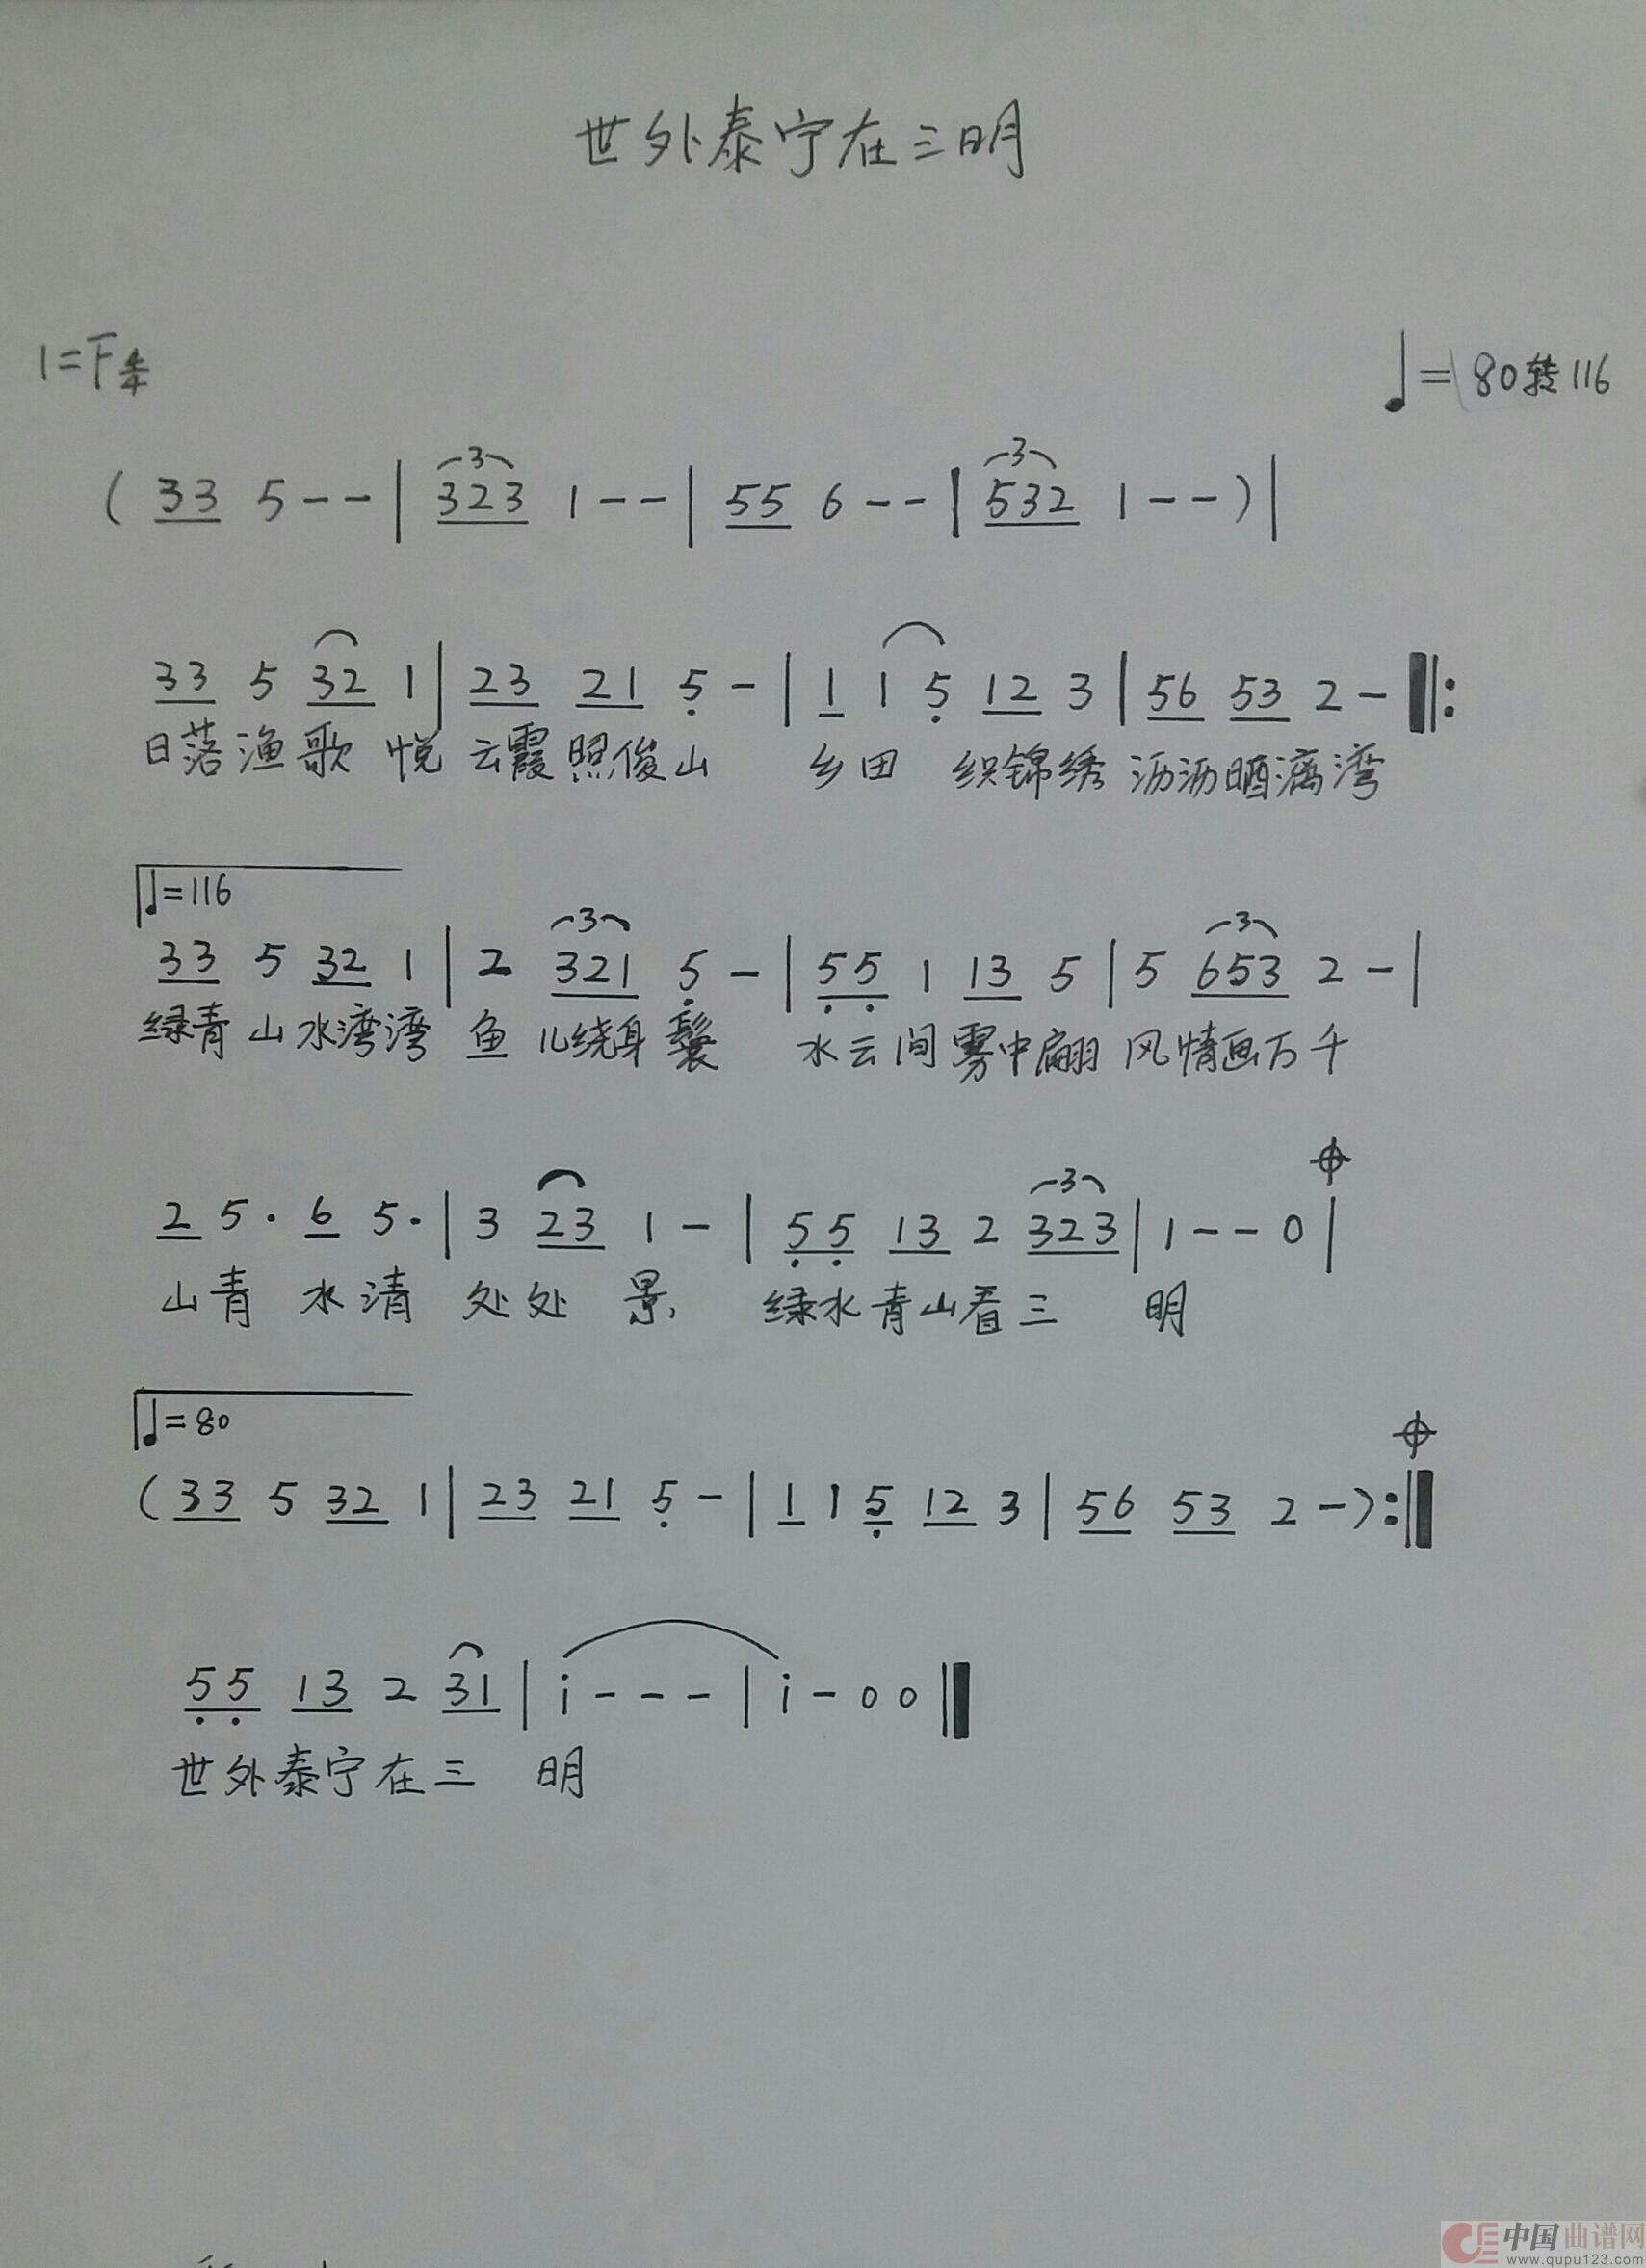 世外泰宁在三明
1=F 4/4 ♩=80转116
( 33 5 - - | 323 1 - - | 55 6 - - | 532 1 - - ) |
33 5 32 1 | 23 21 5 - | 1 1 5 12 3 | 56 53 2 - ‖:
日落渔歌 悦 云霞照俊山 乡田 织锦绣 沥沥晒漓湾
♩=116
33 5 32 1 | 2 321 5 - | 55 1 13 5 | 5 653 2 - |
绿青山水湾湾 鱼儿绕身鬟 水云间雾中翩 风情画万千
2 5· 6 5· | 3 23 1 - | 55 13 2 323 | 1 - - 0 |
山青 水清 处处 景, 绿水青山看三 明
♩=80
( 33 5 32 1 | 23 21 5 - | 1 1 5 12 3 | 56 53 2 - ) :‖
55 13 2 31 | i - - - | i - 0 0 ‖
世外泰宁在三 明
中国曲谱网
www.qupu123.com